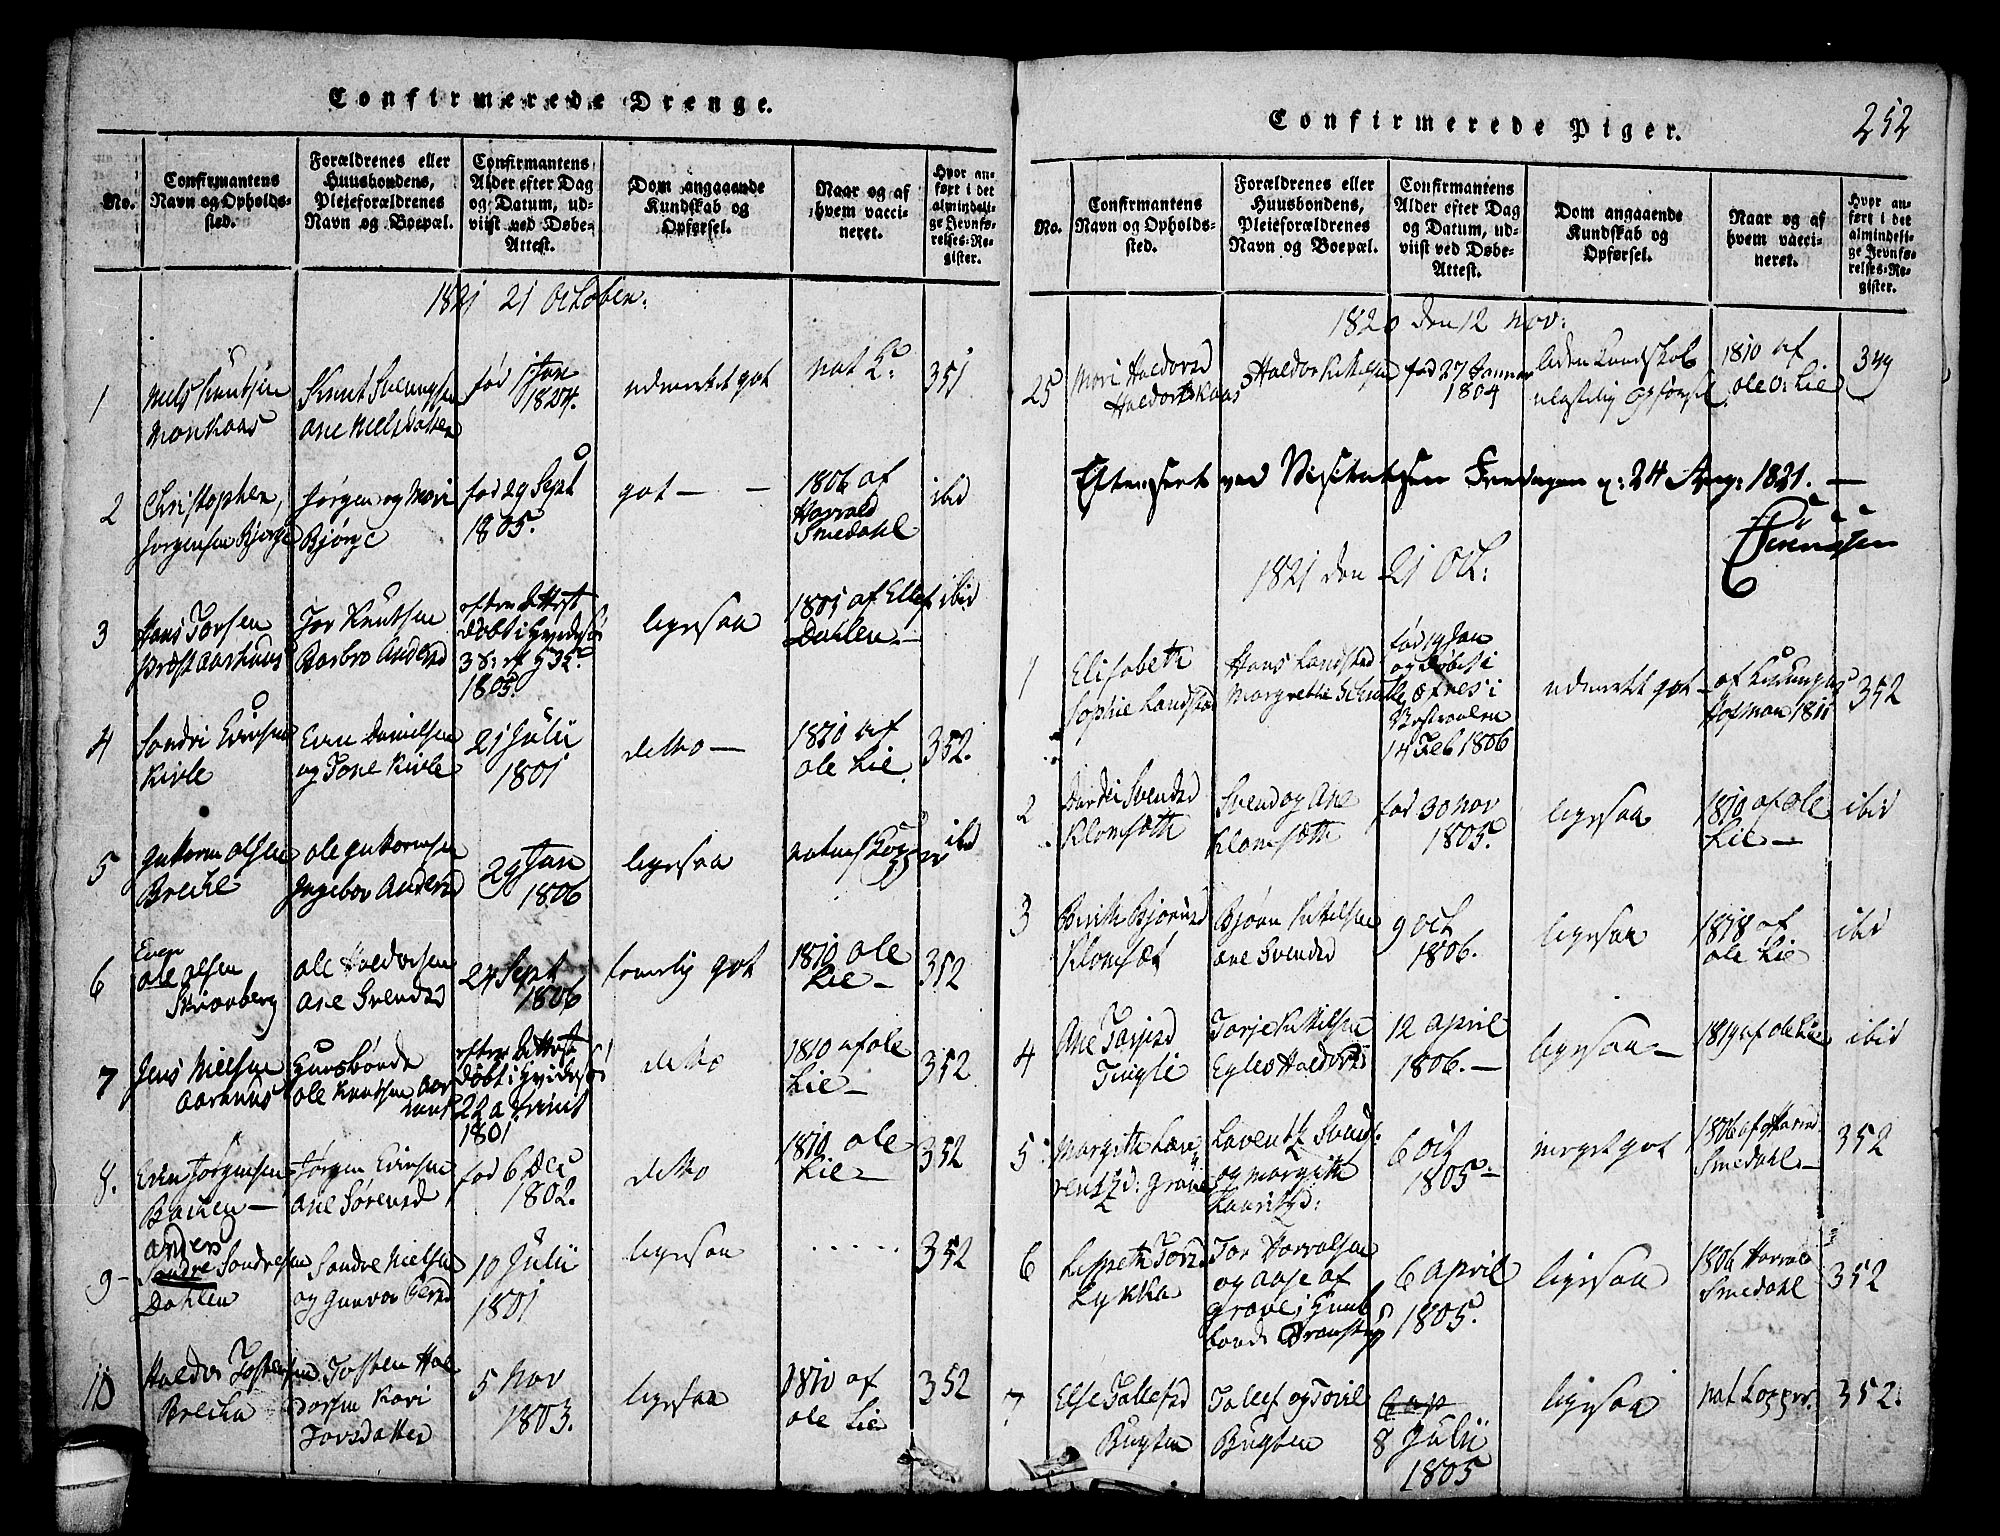 Confirmerede Drenge.
No.
Confirmantens
Navn og Opholds-
sted.
Forældrenes eller
Huusbondens,
Plejeforældrenes
Navn og Boepæl.
Confirmantens
Alder efter Dag
og Datum, ud-
viist ved Døbe-
Attest.
Dom angaaende
Kundskab og
Opførsel.
Naar og af
hvem vacci-
neret.
Hvor an-
ført i det
almindeli-
ge Jevnfø-
relses-Re-
gister.
1821 21 October:
1
Niels Knutsen
Knut
Ane Nielsdatter
fød 1 Jan
udmerket got
nat K:
351
2
Christopher
Jørgensen Bjørge
Jørgen og Mari
Bjørge
fød 29 Sept
1805.
got — —
1806 af
Harvald
Smedahl
ibid
3
Hans Torsen
Præst aarhuus
Tor Knutsen
Barbro Andersd
efter Attest
døbt i Hvidesø
1805.
ligesaa
1801 af Ellef
Dahlen —
ibid
4
Sondri Evensen
Kivle
Even Danielsen
og Tone Kivle
21 Julii
1801
detto —
1810 af
Ole Lie
352.
5
Guttorm Olsen
Breike
Ole Guttormsen
Ingebor Andersd
29 Jan
1806
ligesaa
naturs Kopper
ibid
6
Even
Ole Olsen
Skionberg
Ole Haldorsen
Ane Svensd
24 Sept
1806
temelig got
1810 Ole
Lie —
352
7
Jens Nielsen
Aarhuus
Huusbonde
Ole Knutsen Aar
huus
efter Attest
døbt i Hvidesø
22 a Trinit
1801
detto
1810 af Ole
Lie —
352
8.
Even Jørgensen
Bakken —
Jørgen Evensen
Ane Sørensd
fød 6 Dec
1802.
detto
1810 Ole
Lie —
352
9 -
Anders
Sondre Sondresen
Dahlen
Sondre Nielsen
og Gunvor
10 Julii
1801
ligesaa
. . . . .
352
10
Haldor Tostensen
Breika
Tosten Hal
dorsen Kari
Torsdatter
5 Nov
1803.
ligesaa
1810 af
Ole Lie
352
Confirmerede Piger.
252
No.
Confirmantens
Navn og Opholds-
sted.
Forældrenes eller
Huusbondens,
Plejeforældrenes
Navn og Boepæl.
Confirmantens
Alder efter Dag
og Datum, ud-
viist ved Døbe-
Attest.
Dom angaaende
Kundskab og
Opførsel.
Naar og af
hvem vacci-
neret.
Hvor an-
ført i det
almindeli-
ge Jevnfø-
relses-Re-
gister.
1820 den 12 Nov:
25
Mari Haldorsd
Haldor Kittelsen
fød 27 Januar
1804
liden Kundskab
ulastelig Opførsel
1810 af
Ole O: Lie
349
Efterseet ved Visitatsen Fredagen d: 24 Aug: 1821. —
Sørenssen
1821 den 21 Oct:
1
Elisabeth
Sophie Landstad
Hans Landstad
Margrethe Schielle
fød 19 Jan
og døbt i
14 Feb 1806
udmerket got —
Hofman 1811
352
2
Svendsd
Klomsæth
Svend og Ane
Klomsæth
fød 30 Nov
1805.
ligesaa
1810 af Ole
Lie —
ibid
3
Birith Bjørnsd
Klomsæt
Bjørn Kittelsen
Ane Svendsd
9 Oct
1806.
ligesaa
1818 af
Ole Lie
ibid
4
Ane Torjesd
Torje Kittelsen
12 April
1806. —
ligesaa —
1819 af Ole Lie
ibid
5
Margith Lav
Laventz Svends:
og Margith
6 Oct
1805 —
meget got
1806 af Harvald
Smedahl —
352
6
Lykka
Tor Harvalsen
og Aase af
Grave; Huus
bonde
6 April
1805.
ligesaa
1806 Harvald
Smedahl
352
7
Else Tallefsd
Bugten
Tallef og Toril
Bugten
8 Julii
1805
ligesaa
nat Kopper.
352.